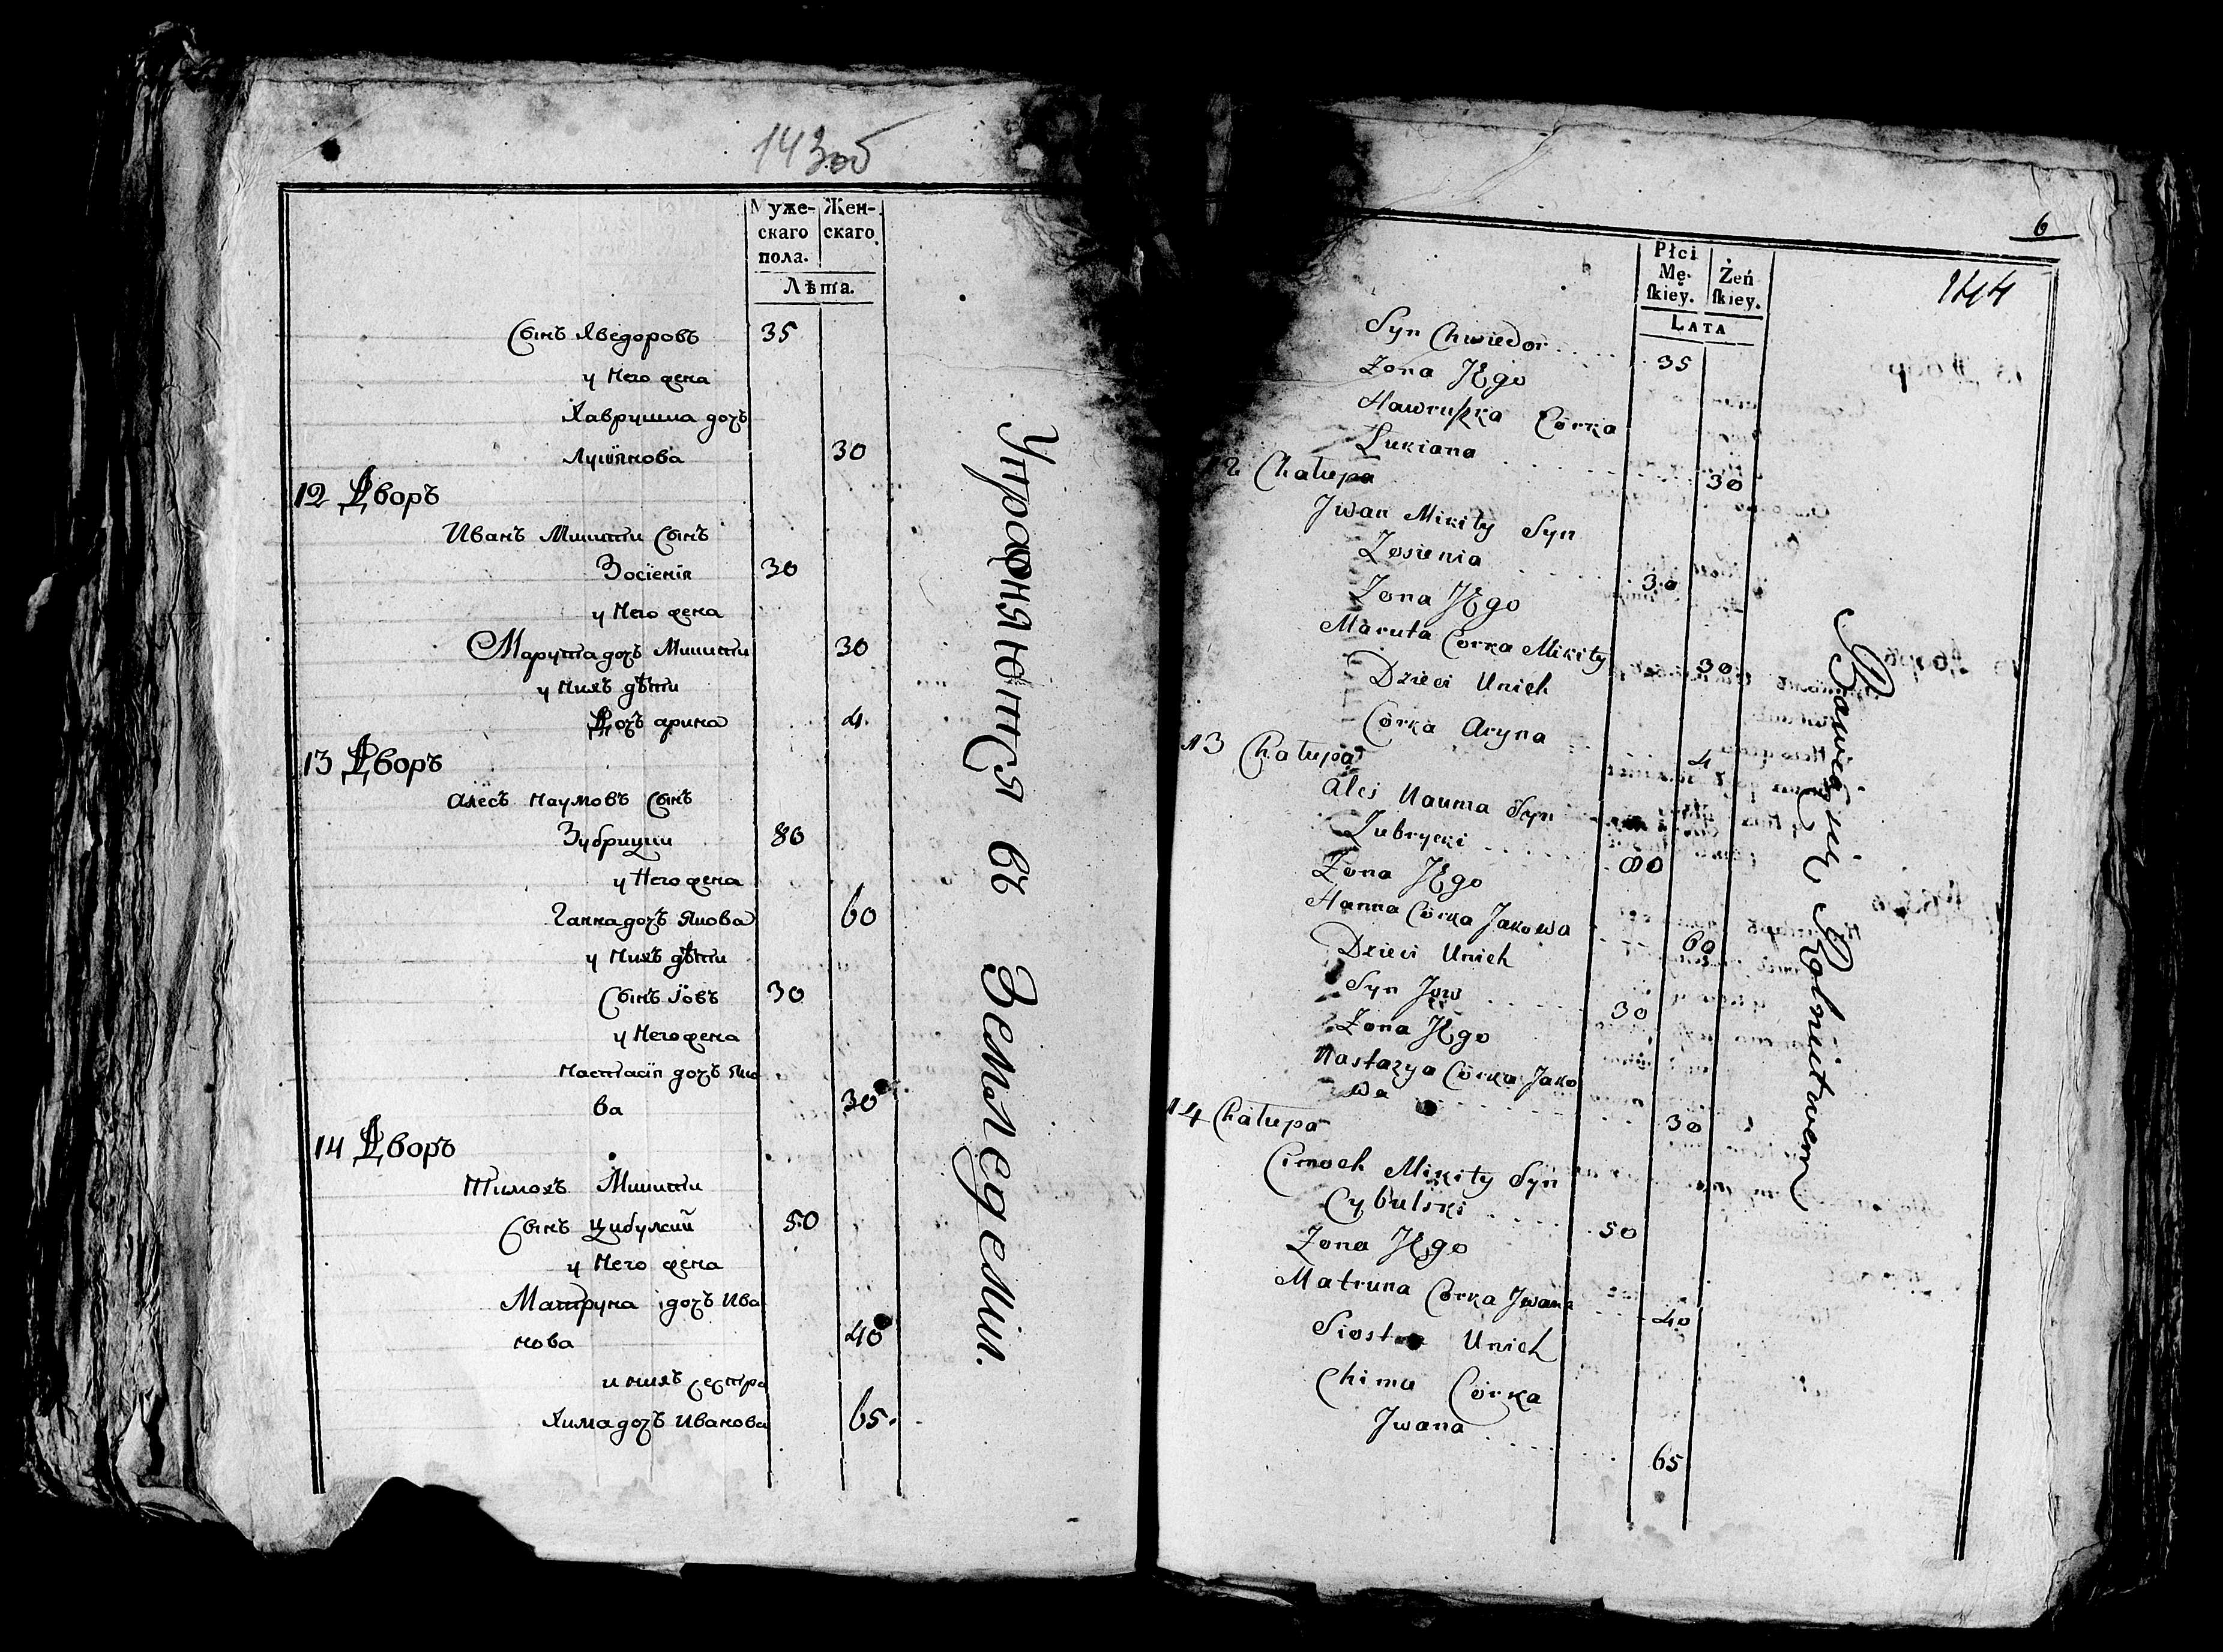 143 об
Муже-
скаго
пола.
Жен-
скаго.
Лѣта.
Сынъ Хведоровъ 35
у Него жена
Хаврушка дочъ
Лукянова 30
12 Дворъ
Иванъ Микити Сынъ
Зосіенія 30
у Него жена
Марута дочъ Микити 30
у Нихъ дѣти
Дочъ арина 4
13 Дворъ
Алесъ Наумовъ Сынъ
Зубрицки 80
у Него жена
Ганна дочъ Якова 60
у Нихъ дѣти
Сынъ Іовъ 30
у Него жена
Настасія дочъ Яко
ва 30
14 Дворъ
Тимохъ Микити
Сынъ Цибулский 50
у Него жена
Матруна дочъ Ива
нова 40
у нихъ сестра
Хима дочъ Иванова 65.
Упрожняютця въ Земледелии.
6
144
Płci
Mę-
ſkiey.
Żeń
ſkiey.
LATA
Syn Chwiedor 35
Żona JEgo
Hawruszka Córka
Lukiana 30
12 Chałupa
Jwan Mikity Syn
Zosienia 30
Żona JEgo
Maruta Corka Mikity 30
Dzieci Unich
Córka Aryna 4
13 Chałupa
Ales Nauma Syn
Zubrycki 80
Żona JEgo
Hanna Córka Jakowa 60
Dzieci Unich
Syn Jow 30
Żona JEgo
Nastazya Córka Jako
wa 30
14 Chałupa
Cimoch Mikity Syn
Cybulski 50
Żona JEgo
Matruna Córka Jwana 40
Siostra Unich
Chima Córka
Jwana 65
Bawią się Rolnitwem